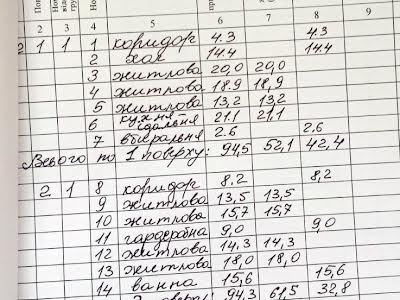 2 3 4 5 6 7 8 9
2 1 1 1 коридор 4.3 4.3
2 хол 14.4 14.4
3 житлова 20,0 20,0
4 житлова 18.9 18,9
5 житлова 13,2 13,2
6 кухня їдальня 21.1 21,1
7 вбиральня 2.6 2.6
Всього по 1 поверху: 94,5 52,1 42,4
2 1 8 коридор 8,2 8,2
9 житлова 13,5 13,5
10 житлова 15,7 15,7
11 гардеробна 9,0 9,0
12 житлова 14,3 14,3
13 житлова 18,0 18,0
14 ванна 15,6 15,6
поверху: 94,3 61,5 32,8